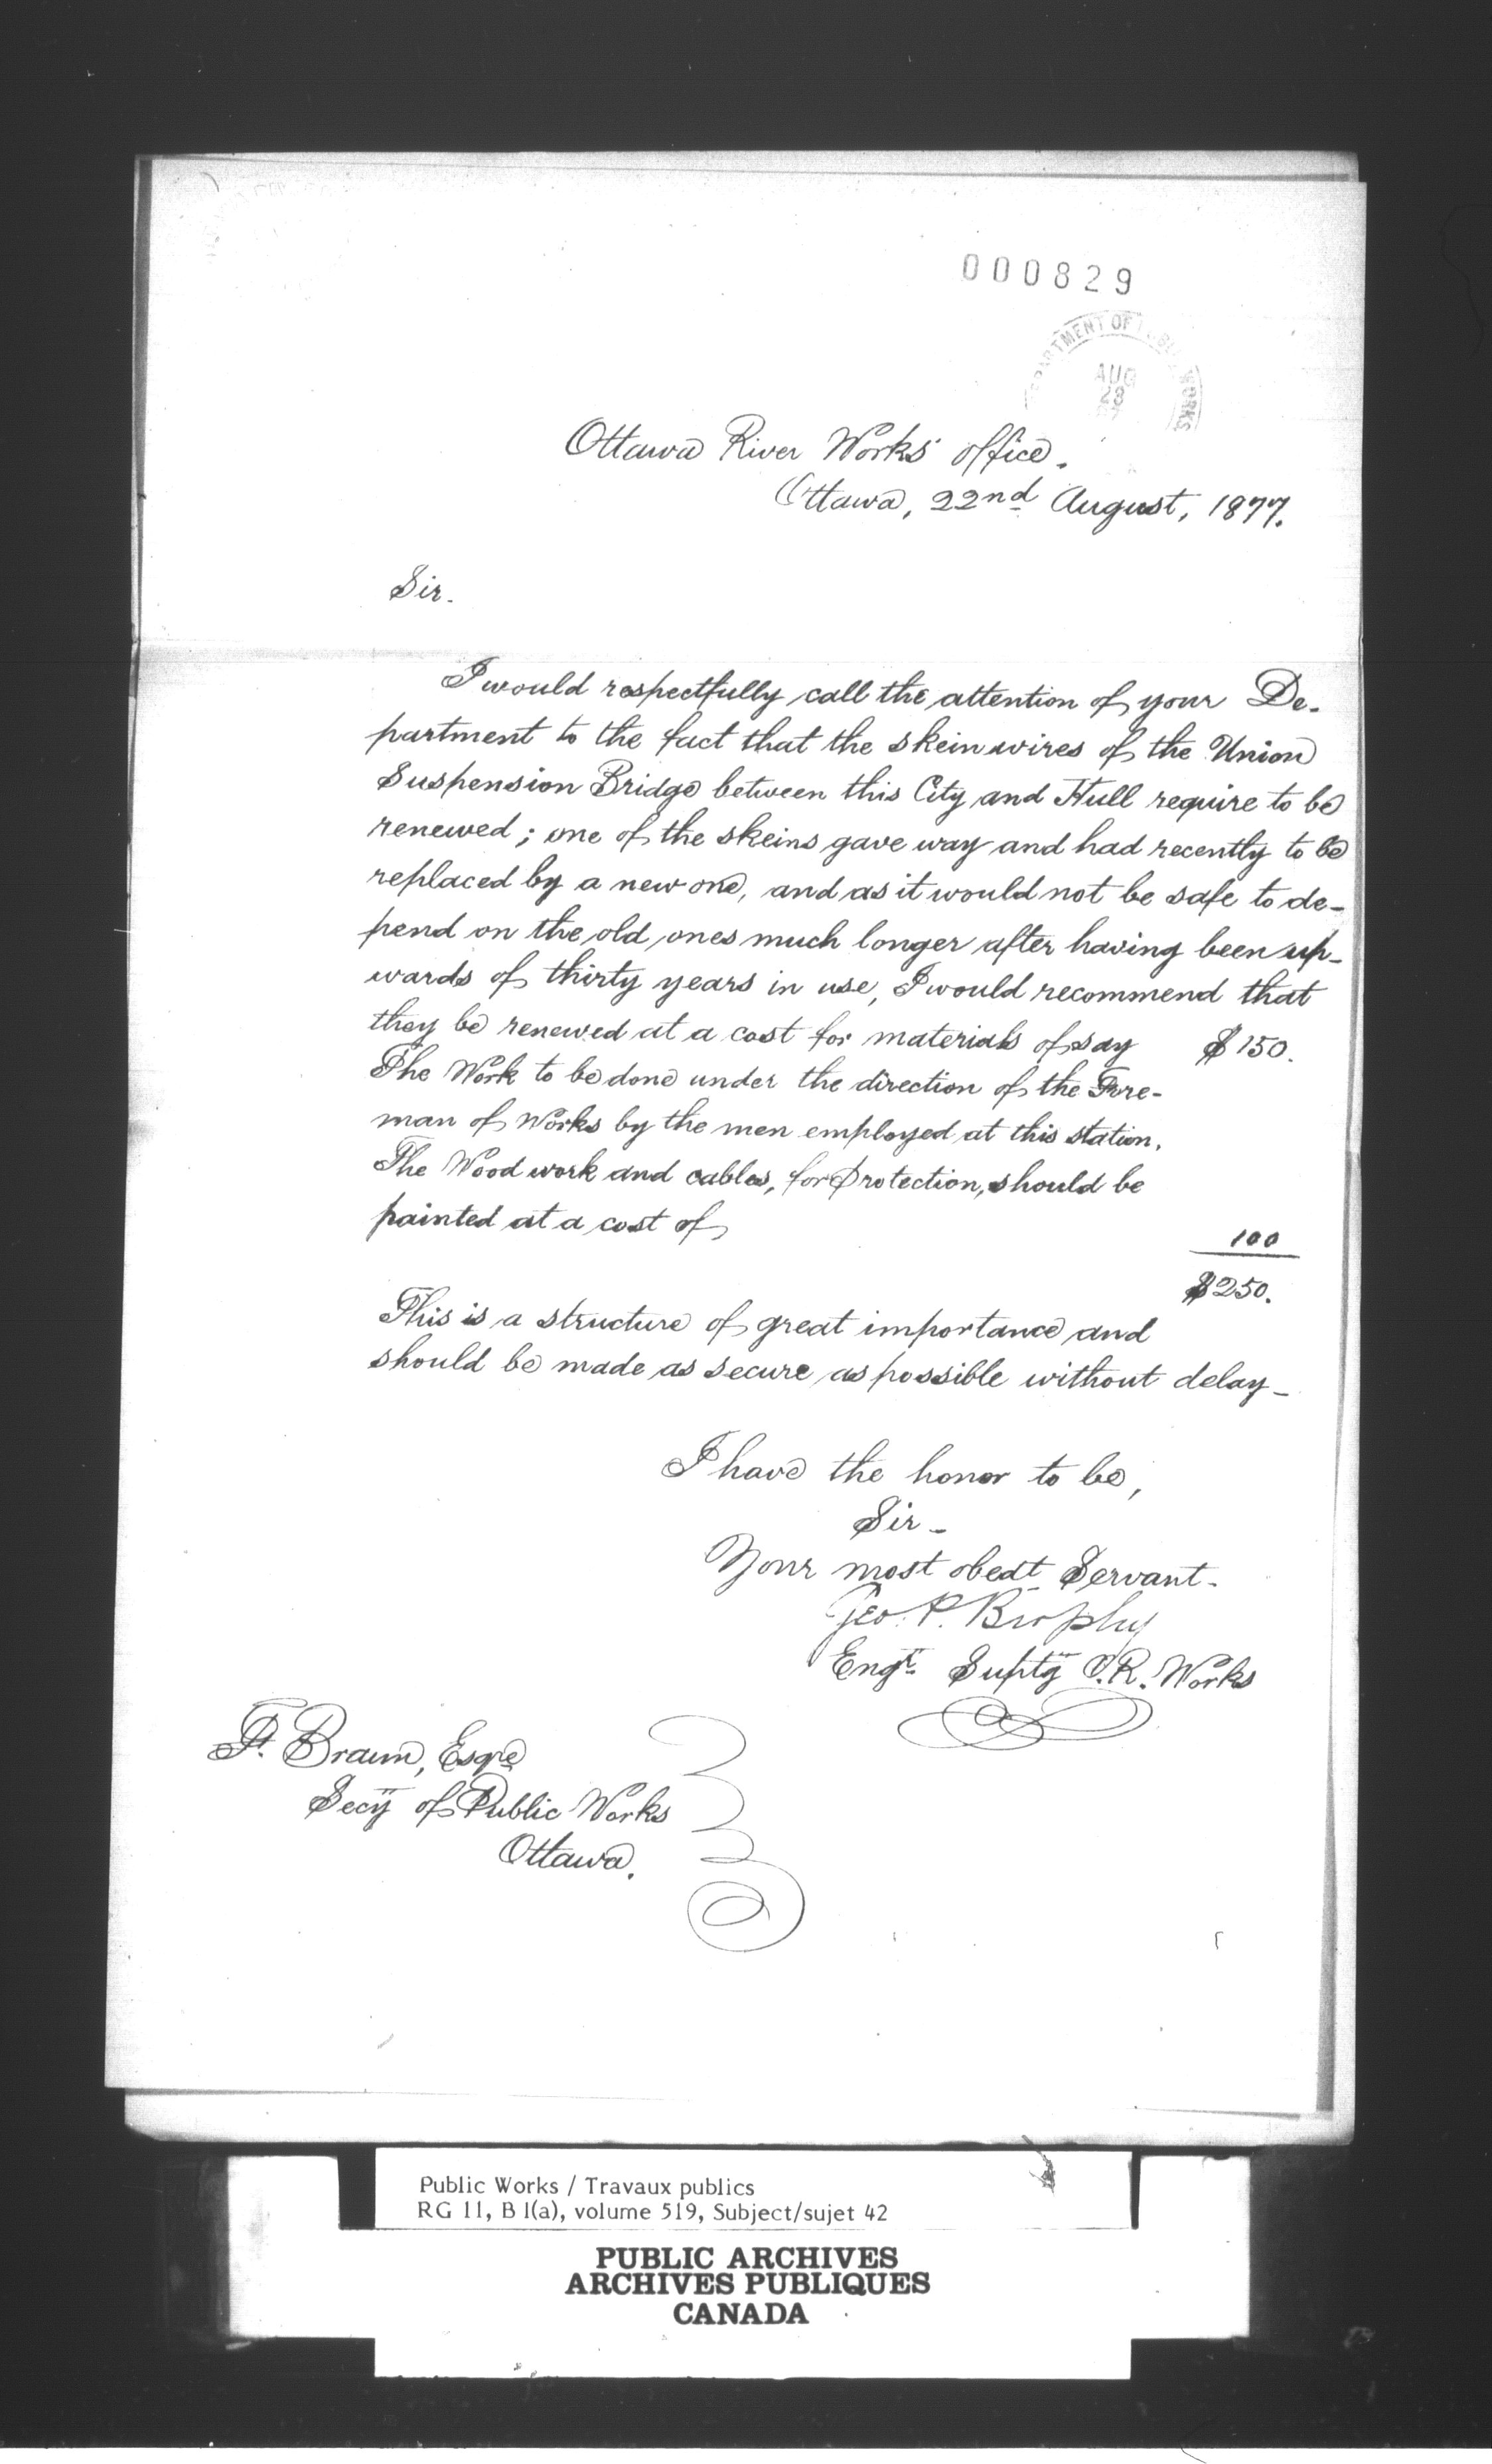 000829
DEPARTMENT OF PUBLIC WORKS
AUG
23
Ottawa River Works' office.
Ottawa, 22nd August, 1877.
Sir.
I would respectfully call the attention of your De-
partment to the fact that the skein wires of the Union
Suspension Bridge between this City and Hull require to be
renewed; one of the skeins gave way and had recently to be
replaced by a new one, and as it would not be safe to de-
pend on the old ones much longer after having been up-
wards of thirty years in use, I would recommend that
they be renewed at a cost for materials of say $150.
The Work to be done under the direction of the Fore-
man of Works by the men employed at this station.
The Wood work and cables, for protection, should be
painted at a cost of
100
$250.
This is a structure of great importance and
should be made as secure as possible without delay-
I have the honor to be,
Sir-
Your most obedt Servant.
Geo. P. Brophy
Engr. Suptg O.R. Works
F. Braun, Esqre
Secy of Public Works
Ottawa.
Public Works / Travaux publics
RG 11, B 1(a), volume 519, Subject/sujet 42
PUBLIC ARCHIVES
ARCHIVES PUBLIQUES
CANADA